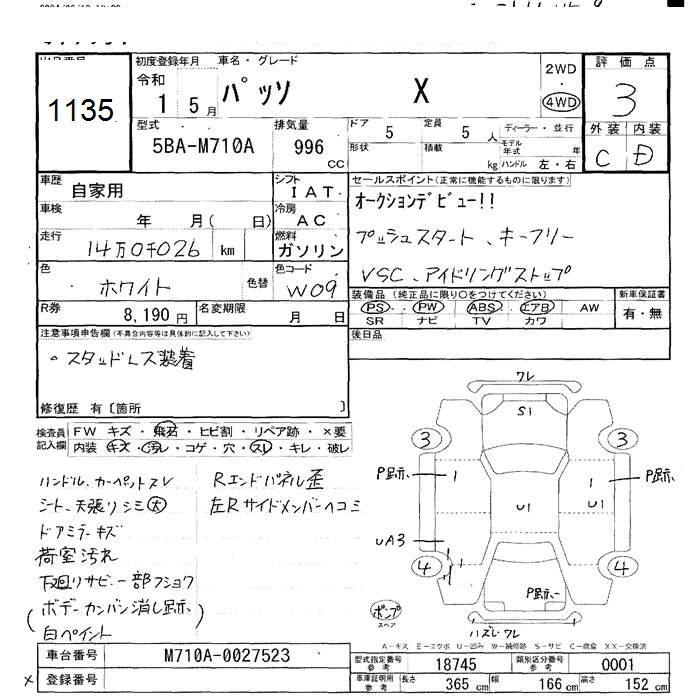 出品番号
1135
初度登録年月 車名・グレード
令和
1 5月 パッソ X
2WD
4WD
評価点
3
外装 内装
C D
型式 排気量
5BA-M710A 996 CC
ドア 5 定員 5 人
形状 積載 kg
ディーラー・並行
モデル年式 年
ハンドル 左・右
車歴 自家用
シフト I AT
車検 年 月( 日)
冷房 AC
走行 14万0千026 km
燃料 ガソリン
色 ホワイト 色替
色コード W09
R券 8,190円 名変期限 月 日
セールスポイント(正常に機能するものに限ります)
オークションデビュー!!
プッシュスタート、キーフリー
VSC、アイドリングストップ
装備品(純正品に限り○をつけてください) 新車保証書
PS PW ABS エアB AW 有・無
SR ナビ TV カワ
後日品
注意事項申告欄(不具合内容等は具体的に記入して下さい)
・スタッドレス装着
修復歴 有〔箇所 〕
検査員記入欄
FW キズ・飛石・ヒビ割・リペア跡・×要
内装 キズ・汚レ・コゲ・穴・スレ・キレ・破レ
ハンドル、カーペットスレ
シート、天張りシミ大
ドアミラーキズ
荷室汚れ
下廻りサビ、一部フショク
(ボデーカンバン消し跡、)
白ペイント
Rエンドパネル歪
左Rサイドメンバーヘコミ
ワレ
S1
3 3
P跡、 1 1 P跡、
U1 U1
UA3
4 4
P跡、
ポンプ
スペア
ハズレ・ワレ
A－キズ E－エクボ U－凹み W－補修跡 S－サビ C－腐食 XX－交換済
車台番号 M710A-0027523
× 登録番号
型式指定番号参考 18745 類別区分番号参考 0001
車庫証明用参考 長さ 365 cm 幅 166 cm 高さ 152 cm